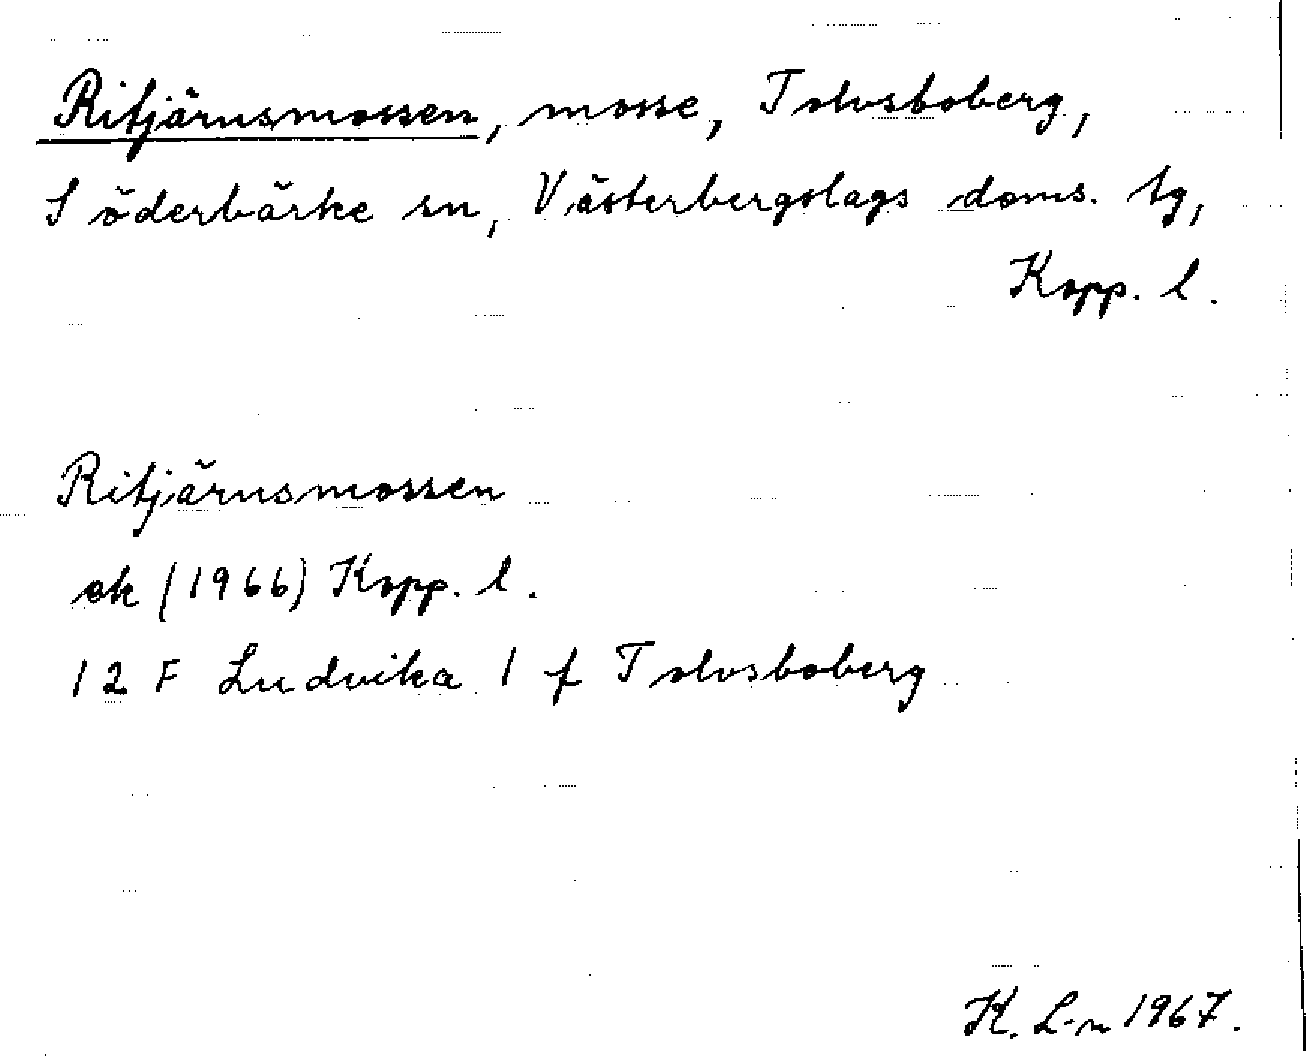 Ritjärnsmossen, mosse, Tolvsboberg,
Söderbärke sn, Västerbergslags doms. tg,
Kopp. l.
Ritjärnsmossen
ek (1966) Kopp. l.
12 F Ludvika 1 f Tolvsboberg
K. L-n 1967.